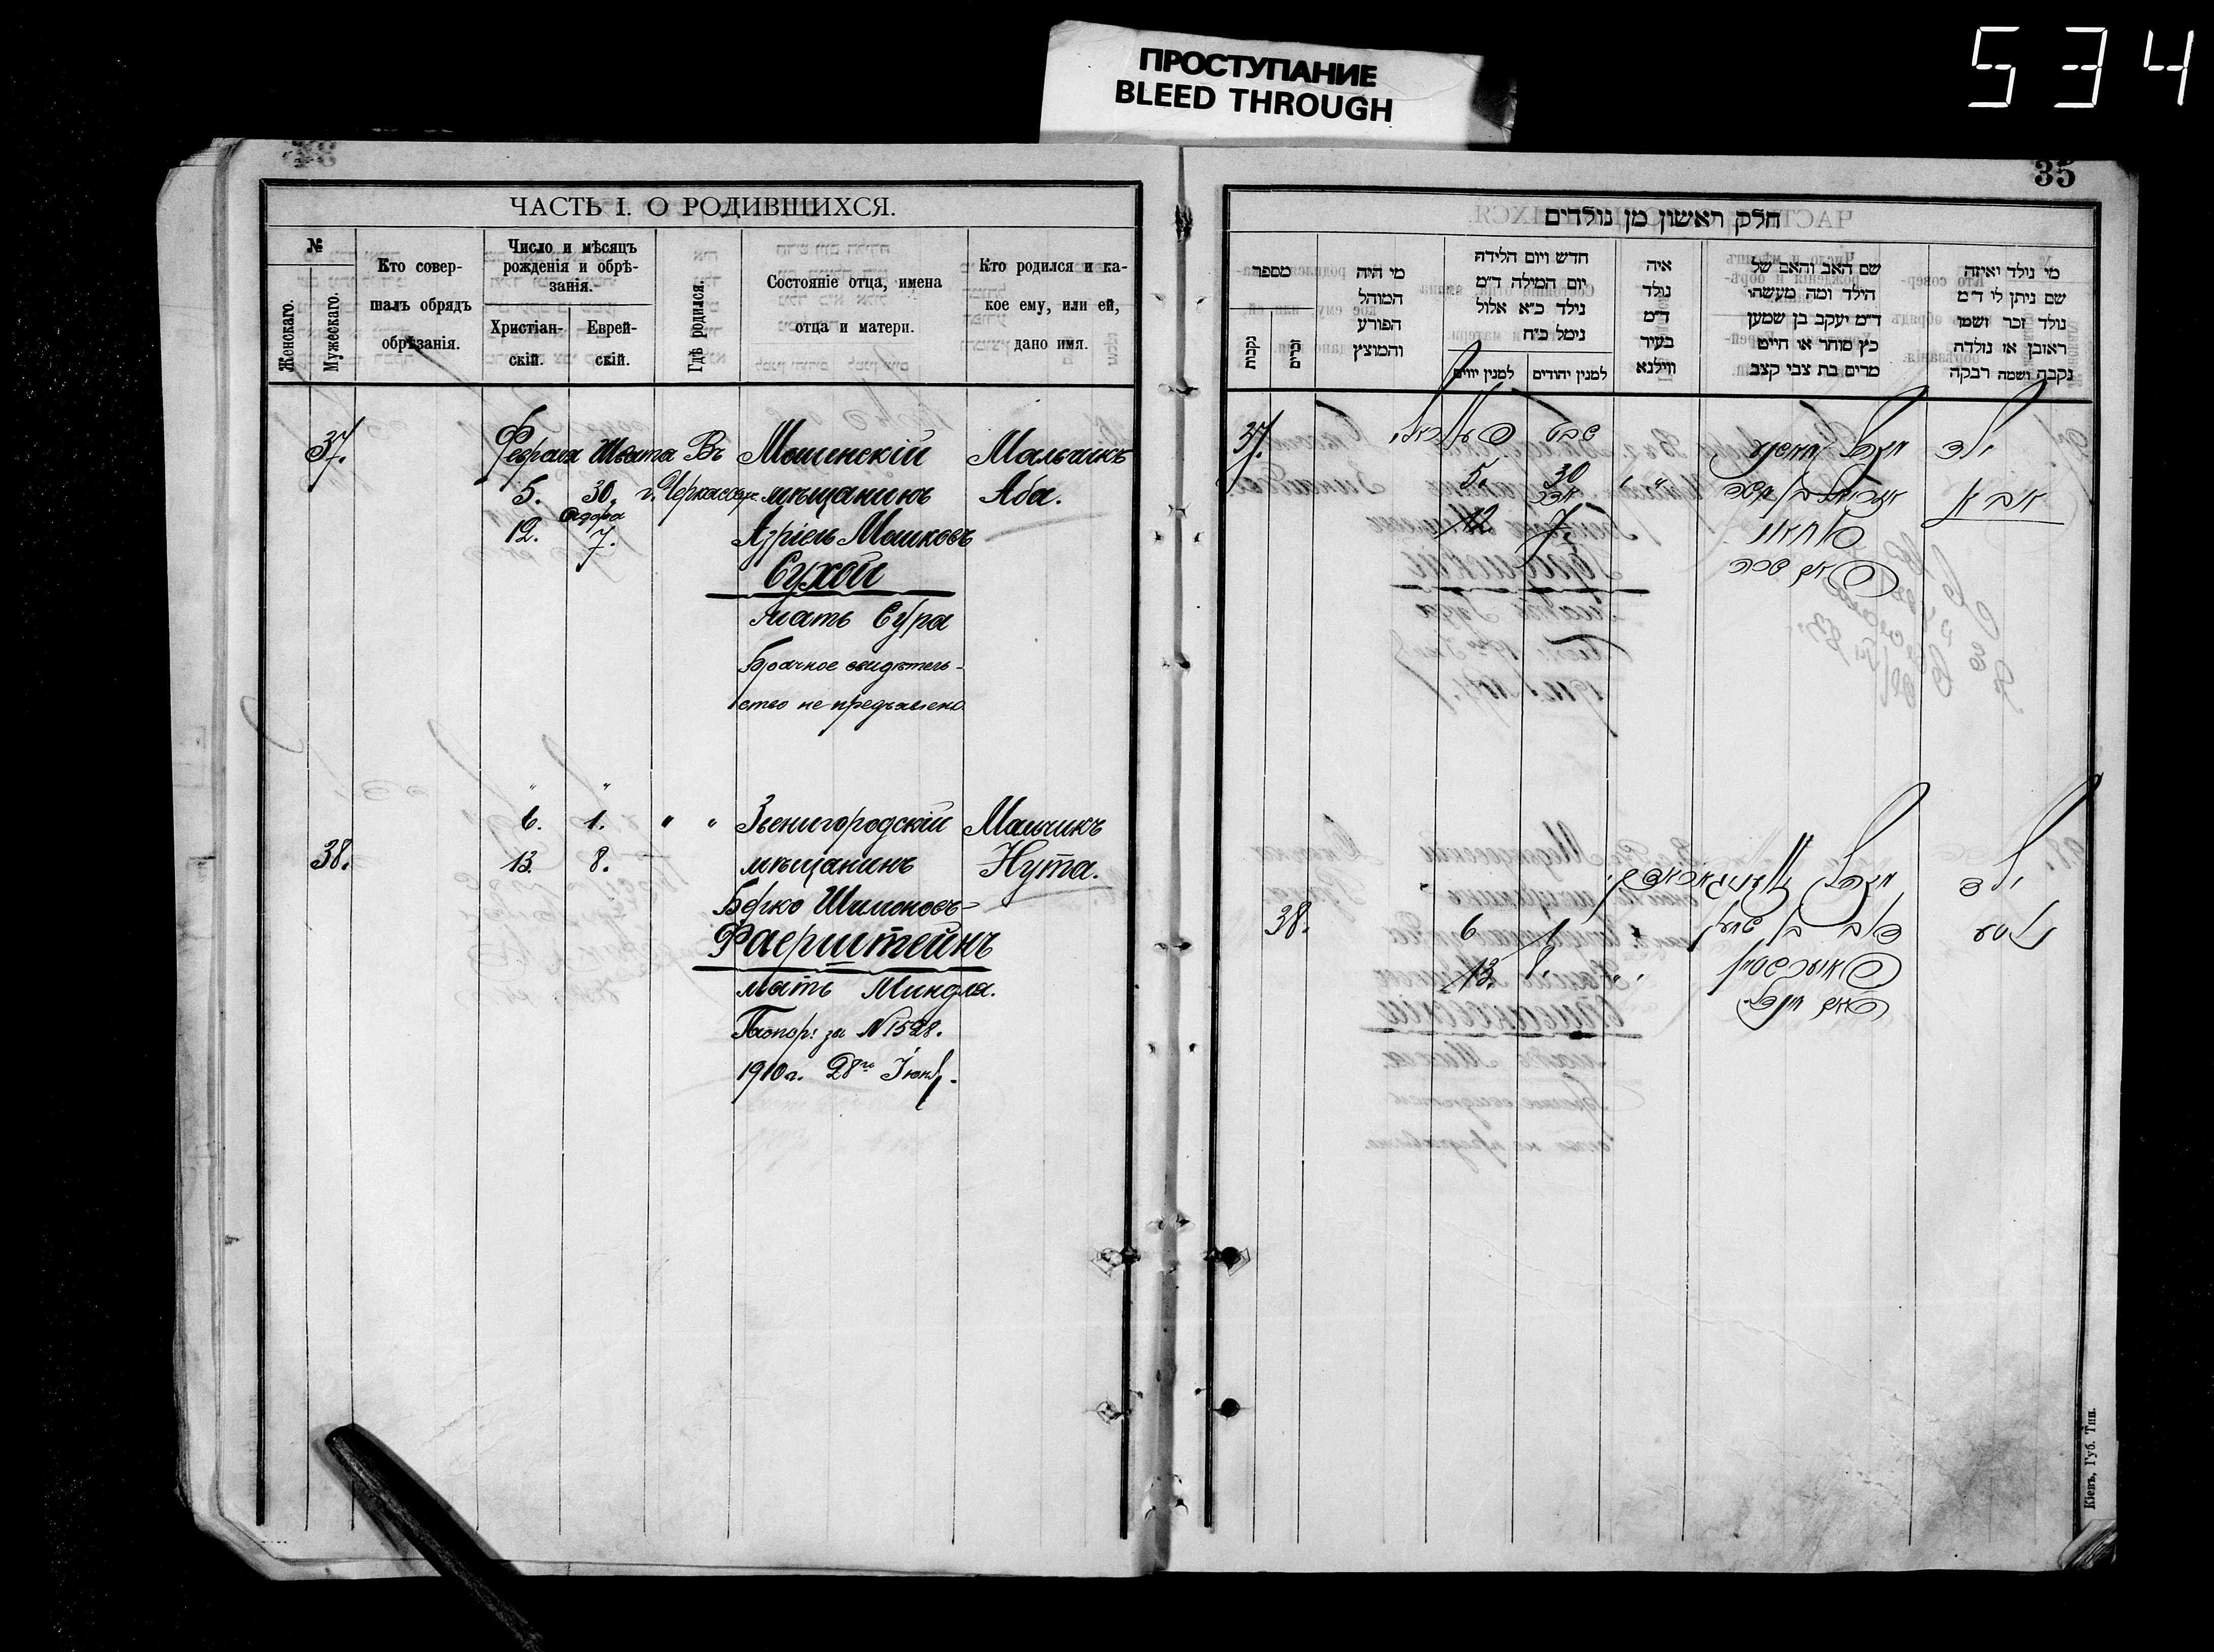 ПРОСТУПАНИЕ
BLEED THROUGH
534
ЧАСТЬ I. О РОДИВШИХСЯ.
№
Женскаго.
Мужескаго.
Кто совер-
шалъ обрядъ
обрѣзанія.
Число и мѣсяцъ
рожденія и обрѣ-
занія.
Христіан-
скій.
Еврей-
скій.
Гдѣ родился.
Состояніе отца, имена
отца и матери.
Кто родился и ка-
кое ему, или ей,
дано имя.
37. Февраля Швата Въ Мошенскій Мальчикъ
5. 30. г. Черкассахъ мѣщанинъ Аба.
12. Адара 7. Азріель Мошковъ
Сухой
мать Сура
Брачное свидѣтель-
ство не предъявлено.
" "
6. 1. " " Звенигородскій Мальчикъ
38. 13. 8. мѣщанинъ Нута.
Берко Шимоновъ-
Фаерштейнъ
мать Миндля.
Паспор: за № 1528.
1910 г. 28го Іюня.
35
חלק ראשון מן נולדים
מספר
נקבות
זכרים
מי היה
המוהל
הפורע
והמוצץ
חדש ויום הלידה
יום המילה ד״מ
נילד כ״א אלול
נימל כ״ח
למנין יווים
למנין יהודים
איה
נולד
ד״מ
בעיר
ווילנא
שם האב והאם של
הילד ומה מעשהו
ד״מ יעקב בן שמען
כץ סוחר או חייט
מרים בת צבי קצב
מי נולד ואיזה
שם ניתן לו ד״מ
נולד זכר ושמו
ראובן או נולדה
נקבה ושמה רבקה
37. שבט ילד
5. 30 אבא
12 אדר 7
ילד
38. 6 1 נוטע
13. 8
Кіевъ, Губ. Тип.